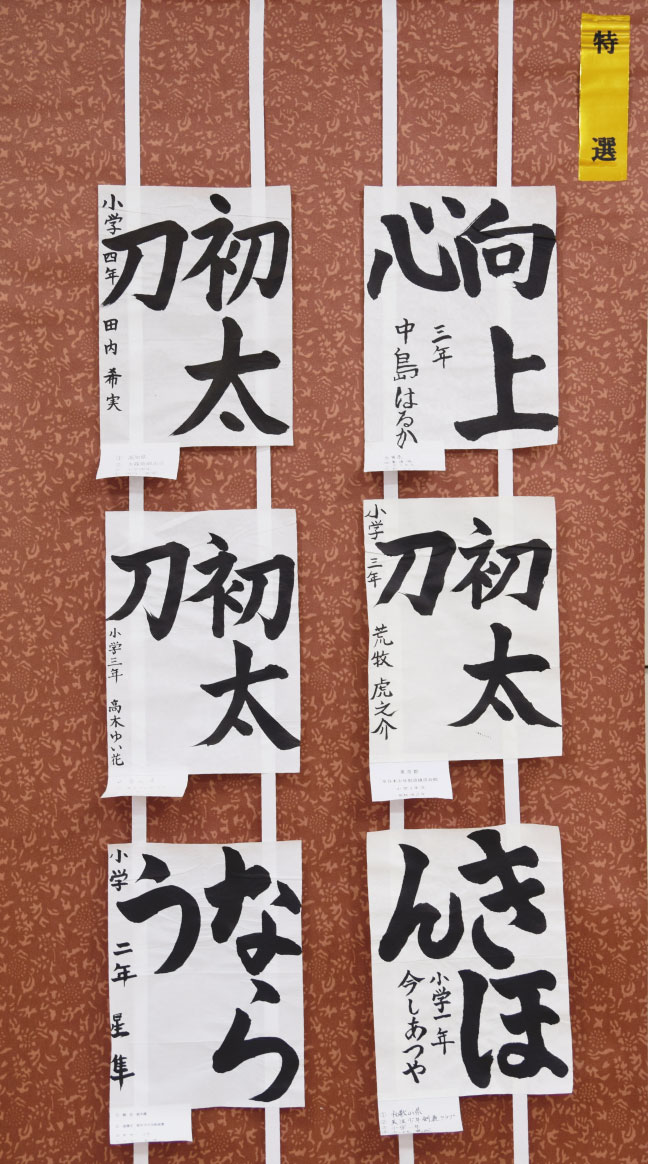 特選
向上
心
三年
中島はるか
初太
刀
小学四年 田内希実
初太
刀
小学 三年 荒牧 虎之介
初太
刀
小学三年 高木ゆい花
きほ
ん
小学一年
今しあつや
なら
う
小学 二年 星 隼